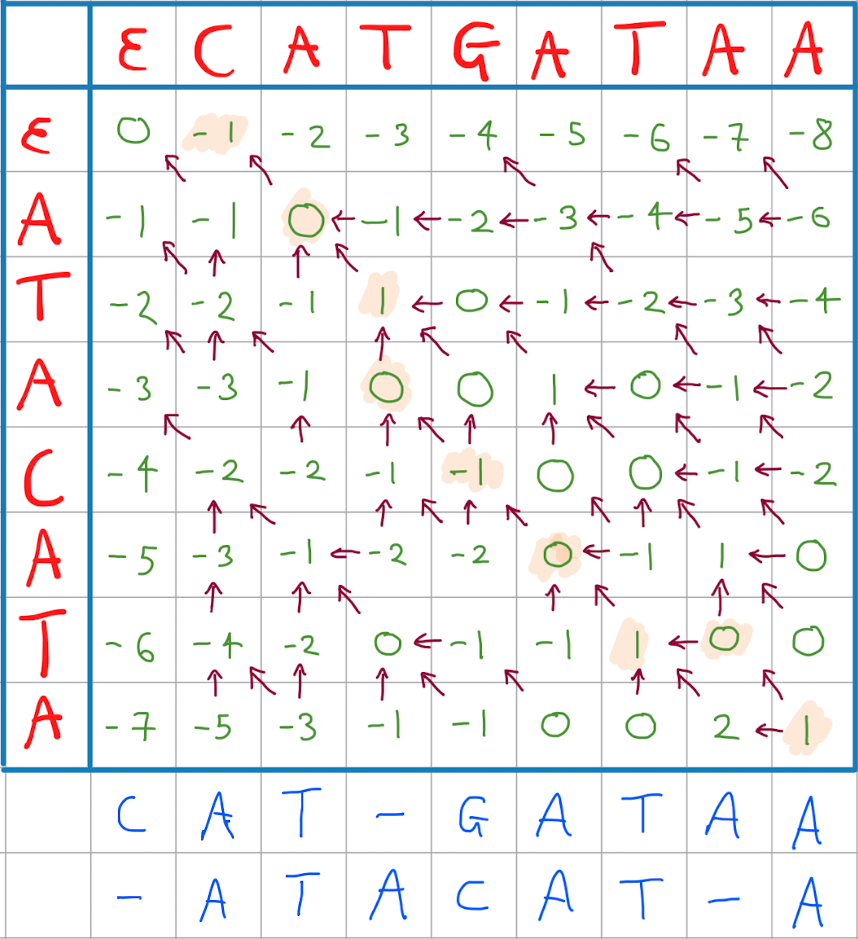 ε C A T G A T A A
ε 0 -1 -2 -3 -4 -5 -6 -7 -8
A -1 -1 0 ← -1 ← -2 ← -3 ← -4 ← -5 ← -6
T -2 -2 -1 1 ← 0 ← -1 ← -2 ← -3 ← -4
A -3 -3 -1 0 0 1 ← 0 ← -1 ← -2
C -4 -2 -2 -1 -1 0 0 ← -1 ← -2
A -5 -3 -1 ← -2 -2 0 ← -1 1 ← 0
T -6 -4 -2 0 ← -1 -1 1 ← 0 0
A -7 -5 -3 -1 -1 0 0 2 ← 1
C A T - G A T A A
- A T A C A T - A